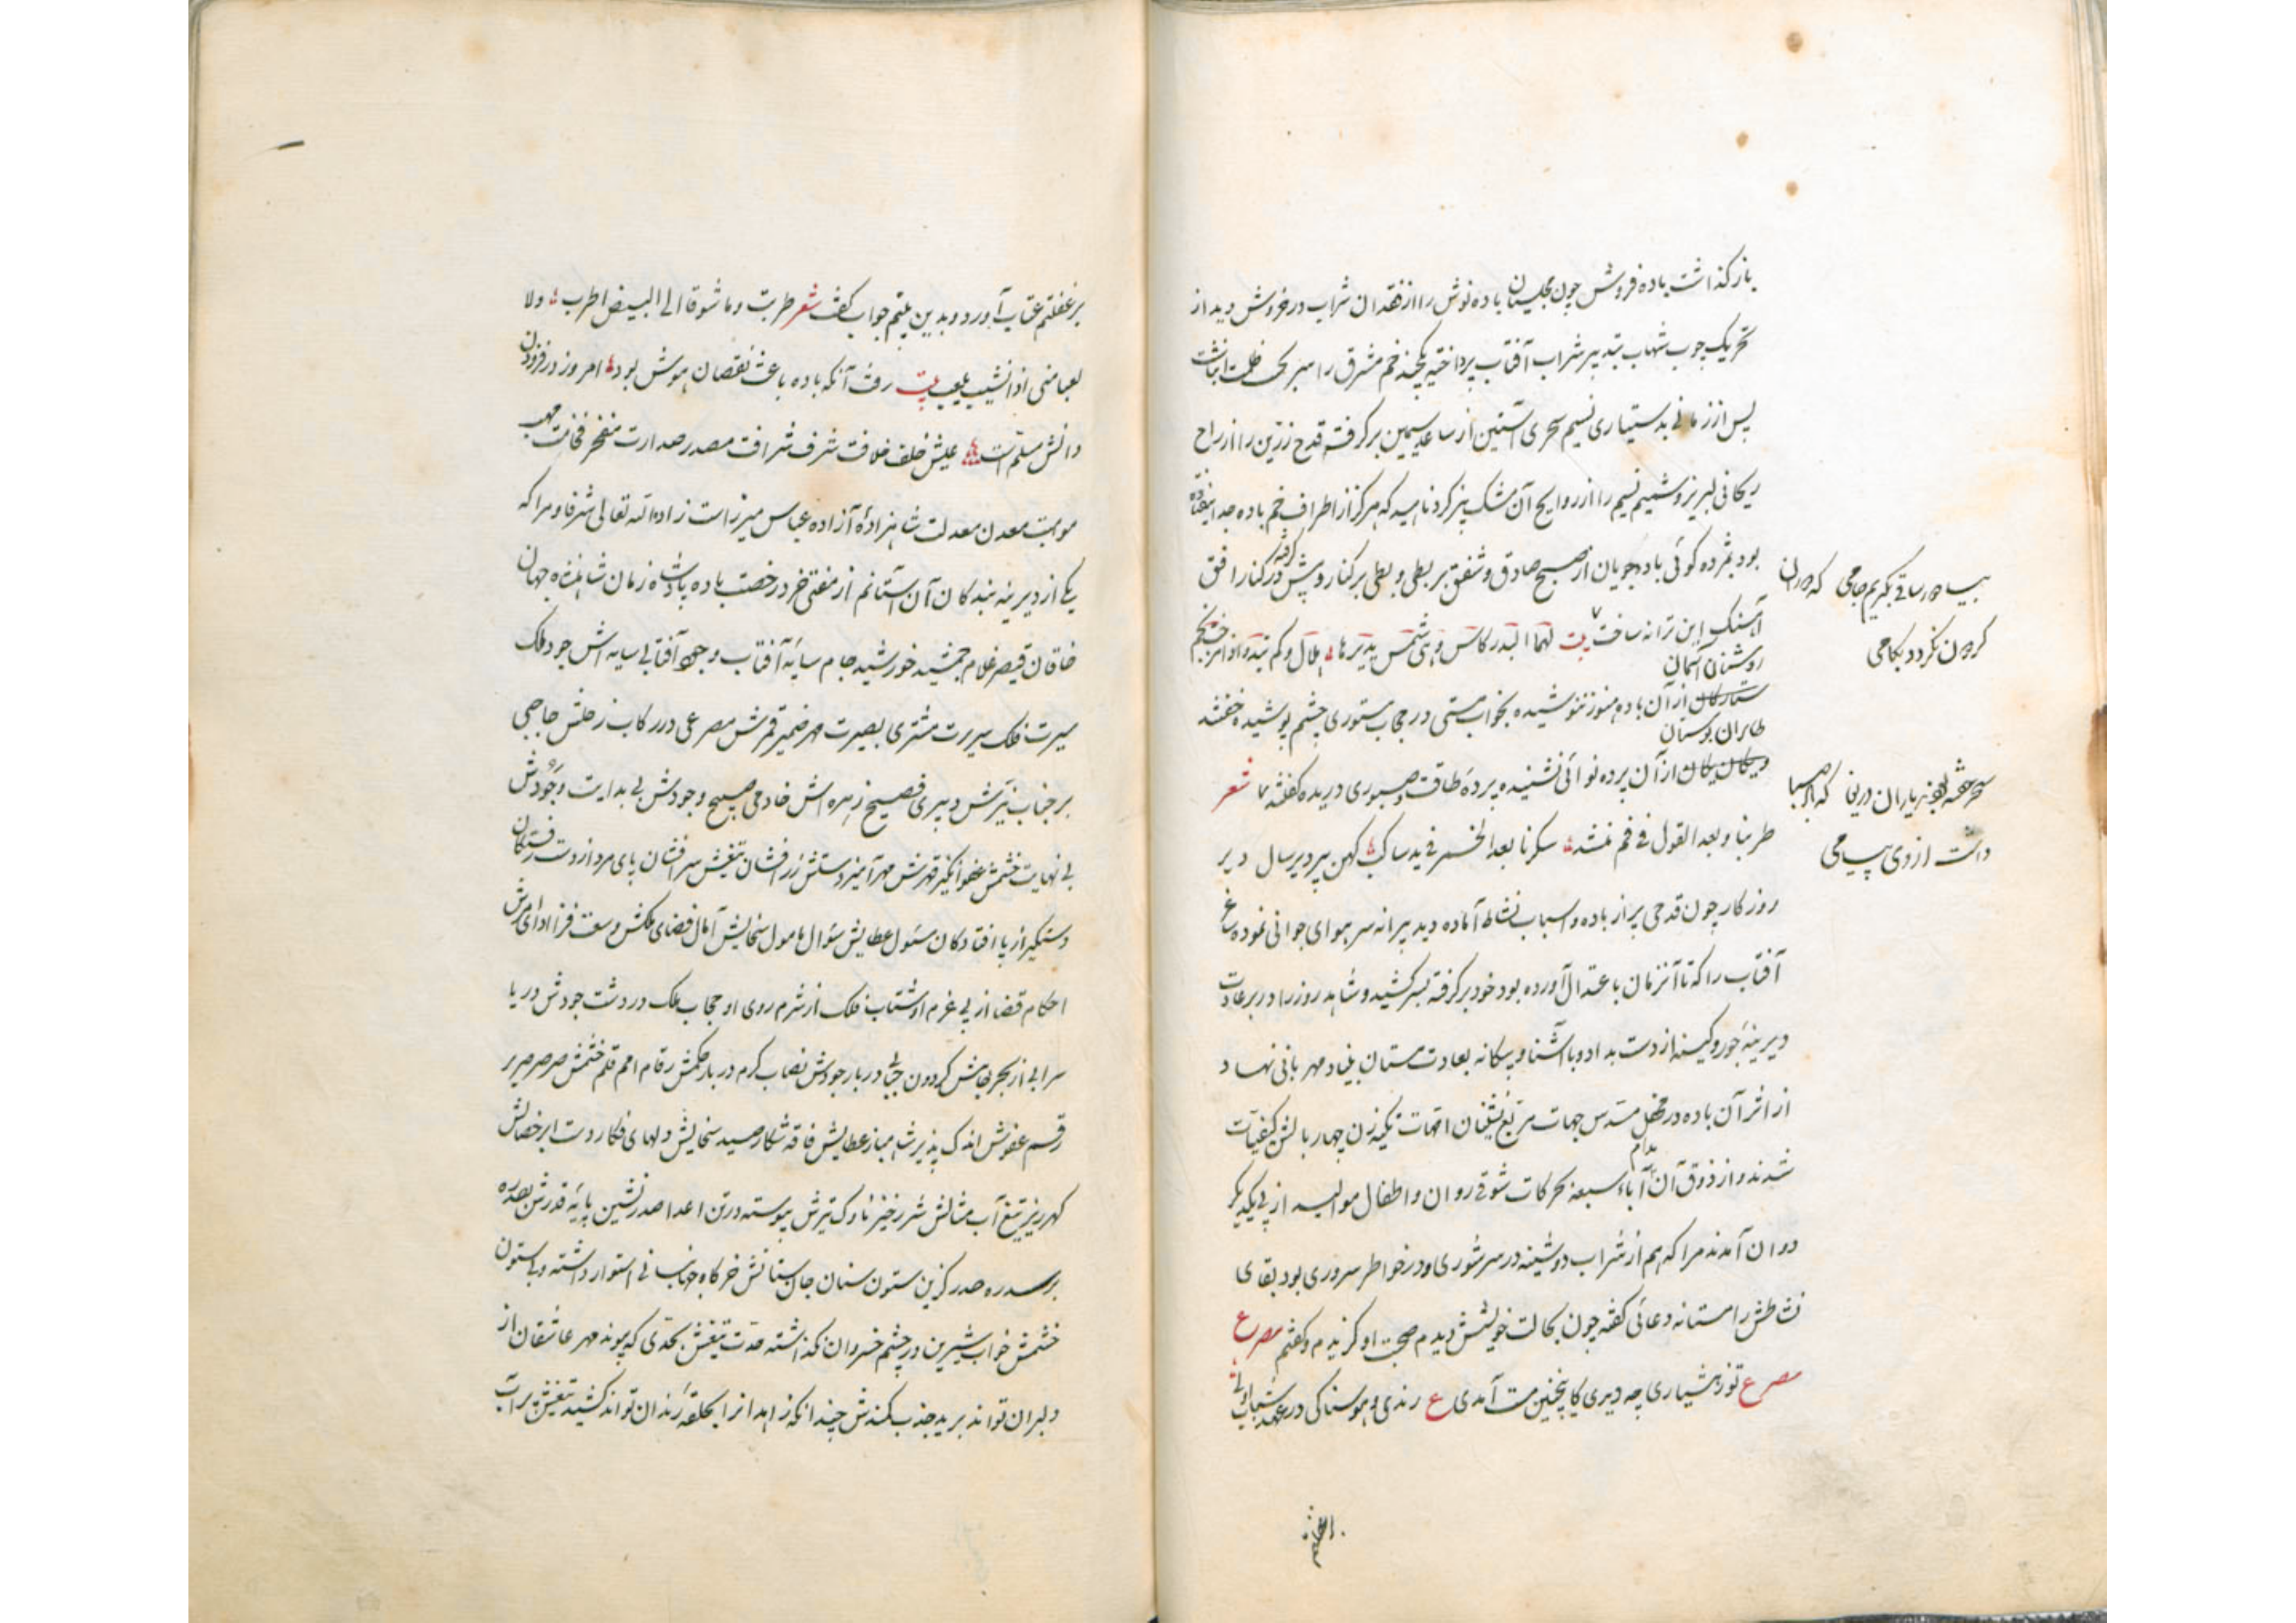 باز گذاشت باده فروش چون مجلسیان باده نوش را از فقدان شراب در خروش دید از
تحریک چوب شهاب بتدبیر شراب آفتاب پرداخته یکچند خم مشرق را سر بکحل ظلمت انباشت
پس از زمانی بدستیاری نسیم سحری آستین از ساعد سیمین بر گرفت قدح زرین را از راح
ریحانی لبریز و شمیم نسیم را از روایح آن مشک بیز کرد ناهید که هرگز از اطراف خم باده جدا نیفتاده
بود بمژده گوئی باده جویان از صبح صادق و شفق بربطی و بطی بر کنار و پیش گرفته در کنار افق
آهنگ این ترانه ساخت بیت لها البدر کاس و هی شمس یدیرها هلال و کم یبدو اذا مزجت نجم
روشنان آسمان
ستارگان از آن باده هنوز ننوشیده بخواب مستی در حجاب مستوری چشم پوشیده خفتند
طایران بوستان
از آن پرده نوائی نشنیده پردهٔ طاقت و صبوری دریده گفتند شعر
طربنا و بعد القول فی فم منشد سکرنا بعد الخمر فی ید ساکب کهن پیر دیر سال دیر
روزگار چون قدحی پر از باده و اسباب نشاط آماده دید پیرانه سر هوای جوانی نموده ساغر
آفتاب را که تا آنزمان باعتدال آورده بود خود برگرفته بسر کشید و شاهد روز را در بر عادت
دیرینهٔ جور و کینه از دست بداد و با آشنا و بیگانه بعادت مستان بنیاد مهربانی نهاد
از اثر آن باده در محفل مسدس جهات مربع نشینان امهات تکیه زن چهار بالش کیفیات
شدند و از ذوق آن مدام آباء سبعه بحرکات شوقی روان و اطفال موالید از پی یکدیگر
دوان آمدند مرا که هم از شراب دوشینه در سر شوری و در خاطر سروری بود بقای
نشاطش را مستانه دعائی گفته چون بحالت خویشش دیدم صحبت او گزیدم و گفتم مصرع
مصرع تو ز هشیاری چه دیدی کاینچنین مست آمدی ع رندی و هوسناکی در عهد شباب اولی
بیا ور ساقی بگیریم جامی که دوران
گردون نگردد بکامی
سحر خفته بودند یاران دریغی که باد صبا
داشت از وی پیامی
بر غفلتم عتاب آورد و بدین بیتم جواب گفت شعر طربت و ما شوقا الی البیض اطرب ولا
لعبا منی اذا لشیب یلعب بیت رفت آنکه باده باعث نقصان هوش بود امروز در فزودن
دانش مسلم است عیش خلف خلافت شرف شرافت مصدر صدارت مفخر فخامت مهب
موهبت معدن معدلت شاهزادهٔ آزاده عباس میرزاست زاده الله تعالی شرفا و مرا که
یکی از دیرینه بندگان آن آستانم از مفتی خرد رخصت باده پادشاه زمان شاهنشاه جهان
خاقان قیصر غلام جمشید خورشید جام سایهٔ آفتاب وجود آفتاب بی سایه اش جود ملک
سیرت فلک سریرت مشتری بصیرت مهر ضمیر قمرش مصرعی در رکاب زحلش حاجبی
بر جناب تیرش دبیری فصیح زهره اش خادمی صبیح وجودش بی بدایت وجودش
بی نهایت خشمش عفو انگیز قهرش مهرآمیز دستش زر افشان تیغش سر افشان پای مرد از دست رفتگان
دستگیر از پا افتادگان مسئول عطایش سؤال مامول سخایش آمال فضای ملکش وسعت فزا ادای امرش
احکام قضا از پی عزم او شتاب فلک از شرم روی او حجاب ملک در دشت جودش دریا
سرابی از بحر بقایش گردون حبابی دربار جودش نصاب کرم دربار حکمش رقام امم قلم خشمش صرصر صریر
رقم عفوش اندک پذیر شهباز عطایش فاقه شکار صید سخایش دلهای فکار دست ابر خصالش
گهر ریز تیغ آب مثالش شرر خیز ناوک تیرش پیوسته در تن اعدا صدر نشین پایهٔ قدرش بصدره
بر سدره صدر گزین ستون سنان جان ستانش خرگاه جهانبانی استوار داشته و بی ستون
خشمش خواب شیرین در چشم خسروان نگذاشته حدت تیغش بحدی که پیوند مهر عاشقان از
دلبران تواند برید جذب کمندش چندانکه زاهدانرا بحلقهٔ رندان تواند کشید تیغش برآب